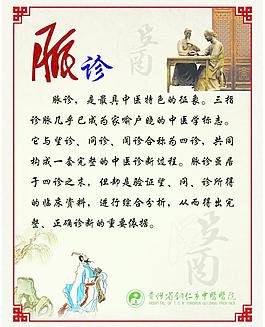 脉诊
脉诊，是最具中医特色的征象。三指
诊脉几乎已成为家喻户晓的中医学标志。
它与望诊、问诊、闻诊合称为四诊，共同
构成一套完整的中医诊断过程。脉诊虽居
于四诊之末，但却是验证望、问、诊所得
的临床资料，进行综合分折，从而得出完
整、正确诊断的重要依据。
贵州省铜仁市中医医院